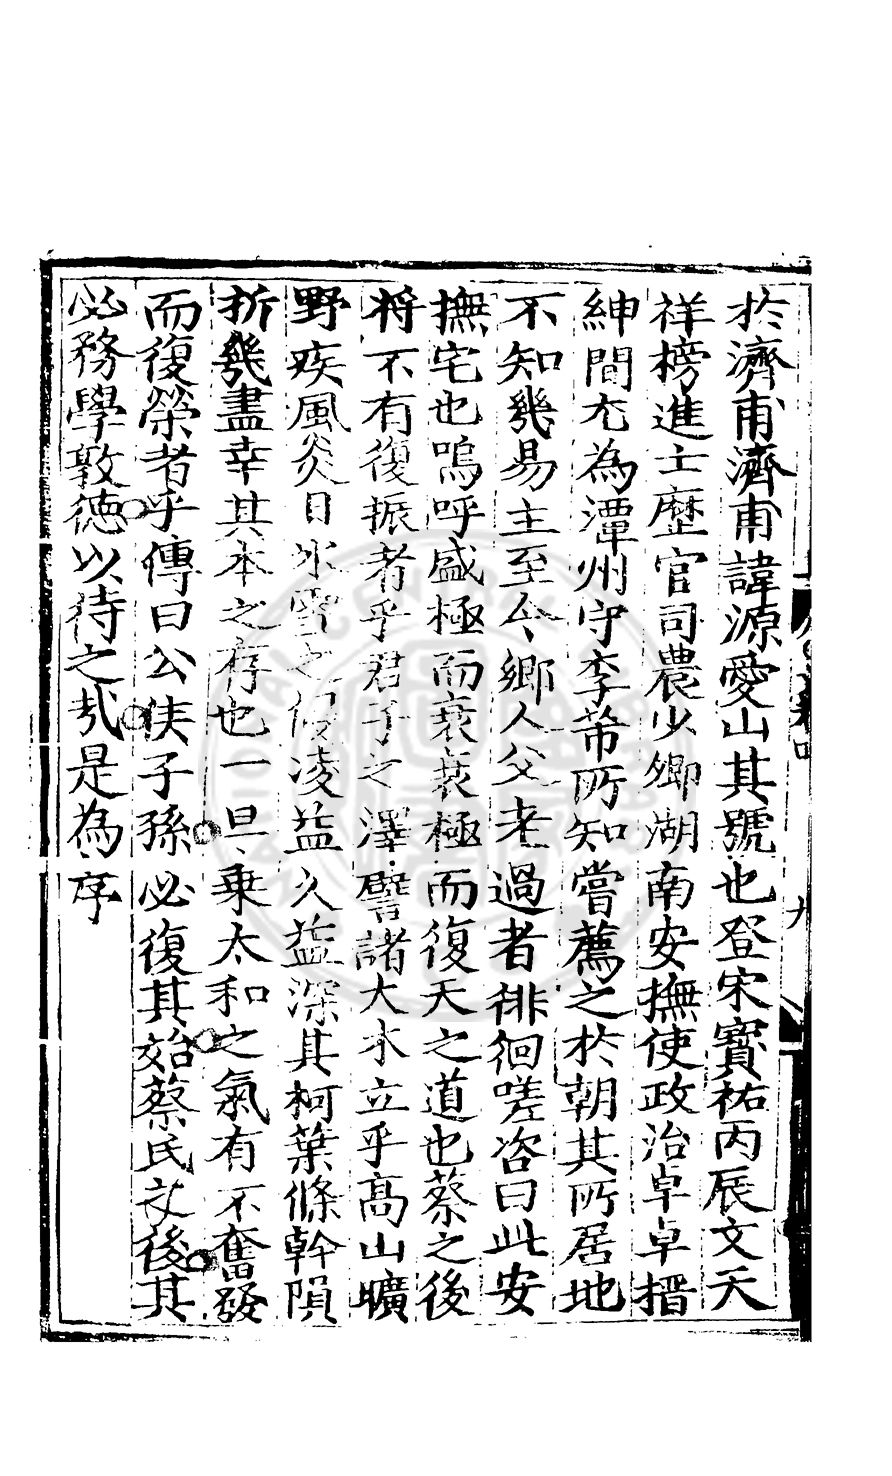 於濟甫濟甫諱源愛山其號也登宋寶祐丙辰文天
祥榜進士歷官司農少卿湖南安撫使政治卓卓搢
紳間尤為潭州守李芾所知嘗薦之於朝其所居地
不知幾易主至今鄉人父老過者徘徊嗟咨曰此安
撫宅也嗚呼盛極而衰衰極而復天之道也蔡之後
將不有復振者乎君子之澤譬諸大木立乎高山曠
野疾風炎日冰雪之侵凌益久益深其柯葉條幹隕
折幾盡幸其本之存也一旦乗太和之氣有不奮發
而復榮者乎傳曰公侯子孫必復其始蔡氏之後其
必務學敦德以待之㢤是為序